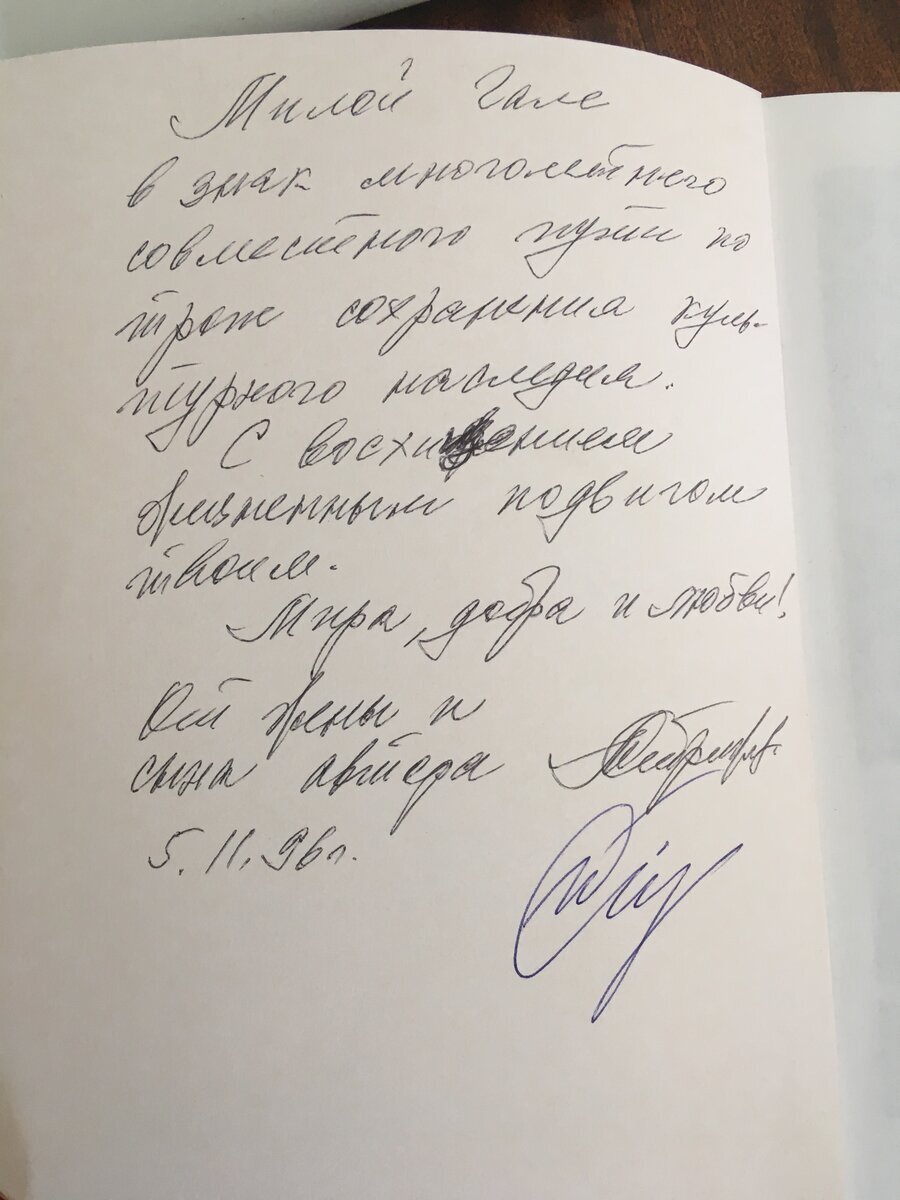 Милой Гале
в знак многолетнего
совместного пути по
тропе сохранения куль-
турного наследия.
С восхищением
жизненным подвигом
твоим.
Мира, добра и любви!
От жены и
сына автора
5.11.96г.